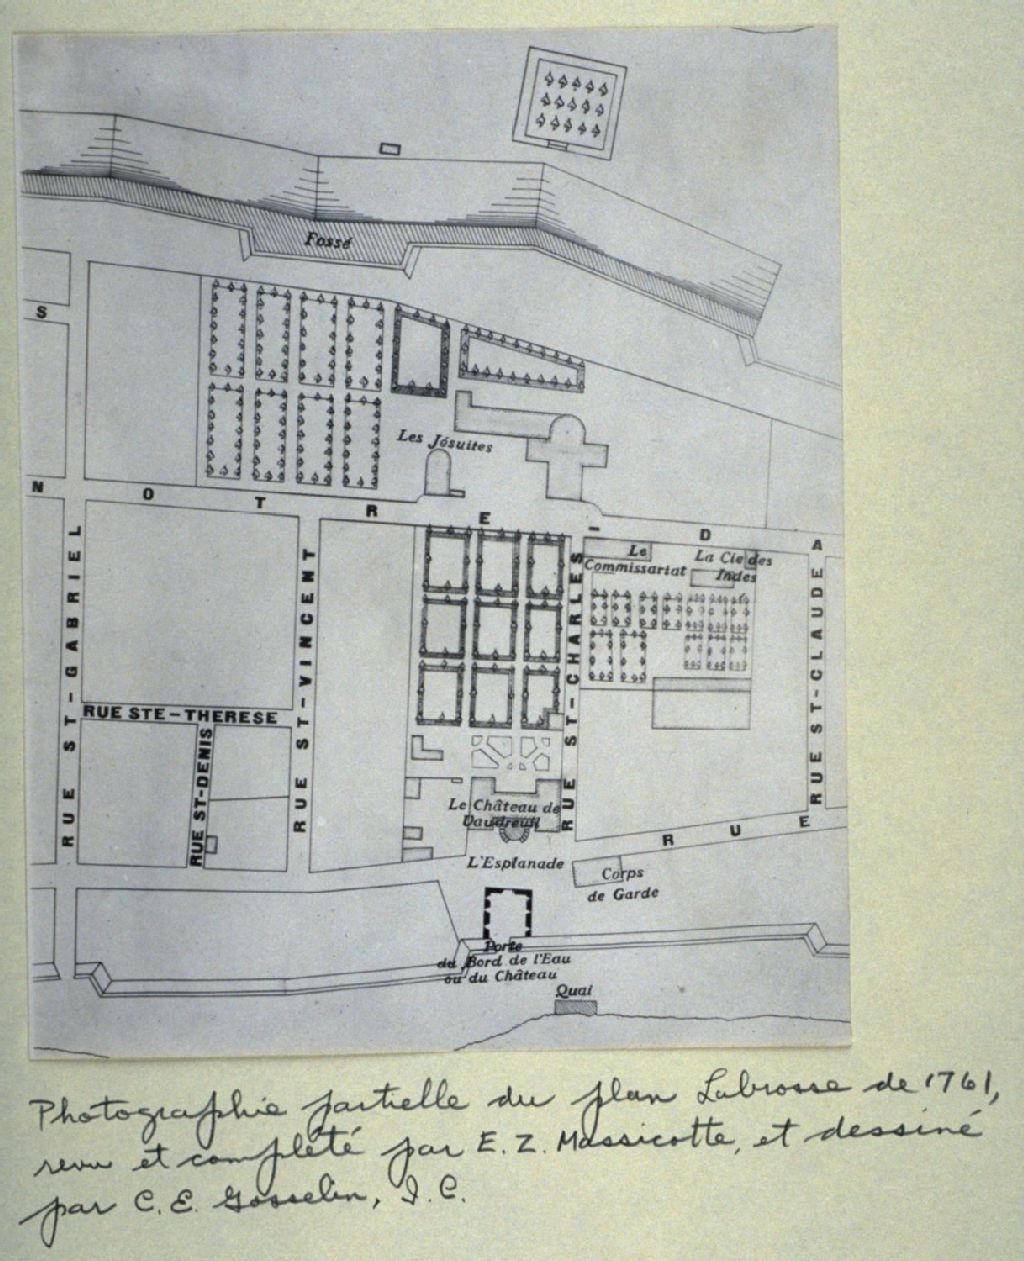 Fossé
S
Les Jésuites
N O T R E - D A
Le
Commissariat
La Cie des
Indes
RUE ST-GABRIEL
RUE ST-VINCENT
RUE ST-CHARLES
RUE ST-CLAUDE
RUE STE-THERESE
RUE ST-DENIS
Le Château de
Vaudreuil
RUE
L'Esplanade
Corps
de Garde
Porte
du Bord de l'Eau
ou du Château
Quai
Photographie partielle du plan Labrosse de 1761,
revu et complété par E. Z. Massicotte, et dessiné
par C. E. Gosselin, I. C.